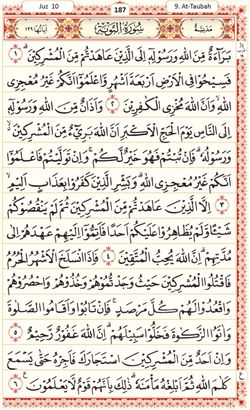 Juz 10
187
9. At-Taubah
سُورَةُ التَّوْبَةِ
بَرَاءَةٌ مِّنَ اللهِ وَرَسُولِهِ إِلَى الَّذِينَ عَاهَدتُّم مِّنَ الْمُشْرِكِينَ ۝١
فَسِيحُوا فِي الْأَرْضِ أَرْبَعَةَ أَشْهُرٍ وَاعْلَمُوا أَنَّكُمْ غَيْرُ مُعْجِزِي
اللهِ وَأَنَّ اللهَ مُخْزِي الْكَافِرِينَ ۝٢ وَأَذَانٌ مِّنَ اللهِ وَرَسُولِهِ
إِلَى النَّاسِ يَوْمَ الْحَجِّ الْأَكْبَرِ أَنَّ اللهَ بَرِيءٌ مِّنَ الْمُشْرِكِينَ
وَرَسُولُهُ فَإِن تُبْتُمْ فَهُوَ خَيْرٌ لَّكُمْ وَإِن تَوَلَّيْتُمْ فَاعْلَمُوا
أَنَّكُمْ غَيْرُ مُعْجِزِي اللهِ وَبَشِّرِ الَّذِينَ كَفَرُوا بِعَذَابٍ أَلِيمٍ
۝٣ إِلَّا الَّذِينَ عَاهَدتُّم مِّنَ الْمُشْرِكِينَ ثُمَّ لَمْ يَنقُصُوكُمْ
شَيْئًا وَلَمْ يُظَاهِرُوا عَلَيْكُمْ أَحَدًا فَأَتِمُّوا إِلَيْهِمْ عَهْدَهُمْ إِلَى
مُدَّتِهِمْ إِنَّ اللهَ يُحِبُّ الْمُتَّقِينَ ۝٤ فَإِذَا انسَلَخَ الْأَشْهُرُ الْحُرُمُ
فَاقْتُلُوا الْمُشْرِكِينَ حَيْثُ وَجَدتُّمُوهُمْ وَخُذُوهُمْ وَاحْصُرُوهُمْ
وَاقْعُدُوا لَهُمْ كُلَّ مَرْصَدٍ فَإِن تَابُوا وَأَقَامُوا الصَّلٰوةَ
وَآتَوُا الزَّكٰوةَ فَخَلُّوا سَبِيلَهُمْ إِنَّ اللهَ غَفُورٌ رَّحِيمٌ ۝٥
وَإِنْ أَحَدٌ مِّنَ الْمُشْرِكِينَ اسْتَجَارَكَ فَأَجِرْهُ حَتَّى يَسْمَعَ
كَلٰمَ اللهِ ثُمَّ أَبْلِغْهُ مَأْمَنَهُ ذٰلِكَ بِأَنَّهُمْ قَوْمٌ لَّا يَعْلَمُونَ ۝٦